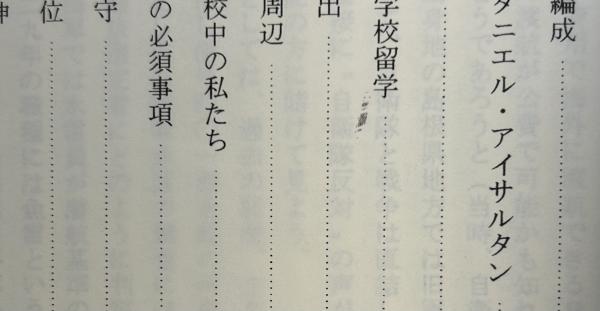 編成
タニエル・アイサルタン
学校留学
出
周辺
校中の私たち
の必須事項
守
位
神